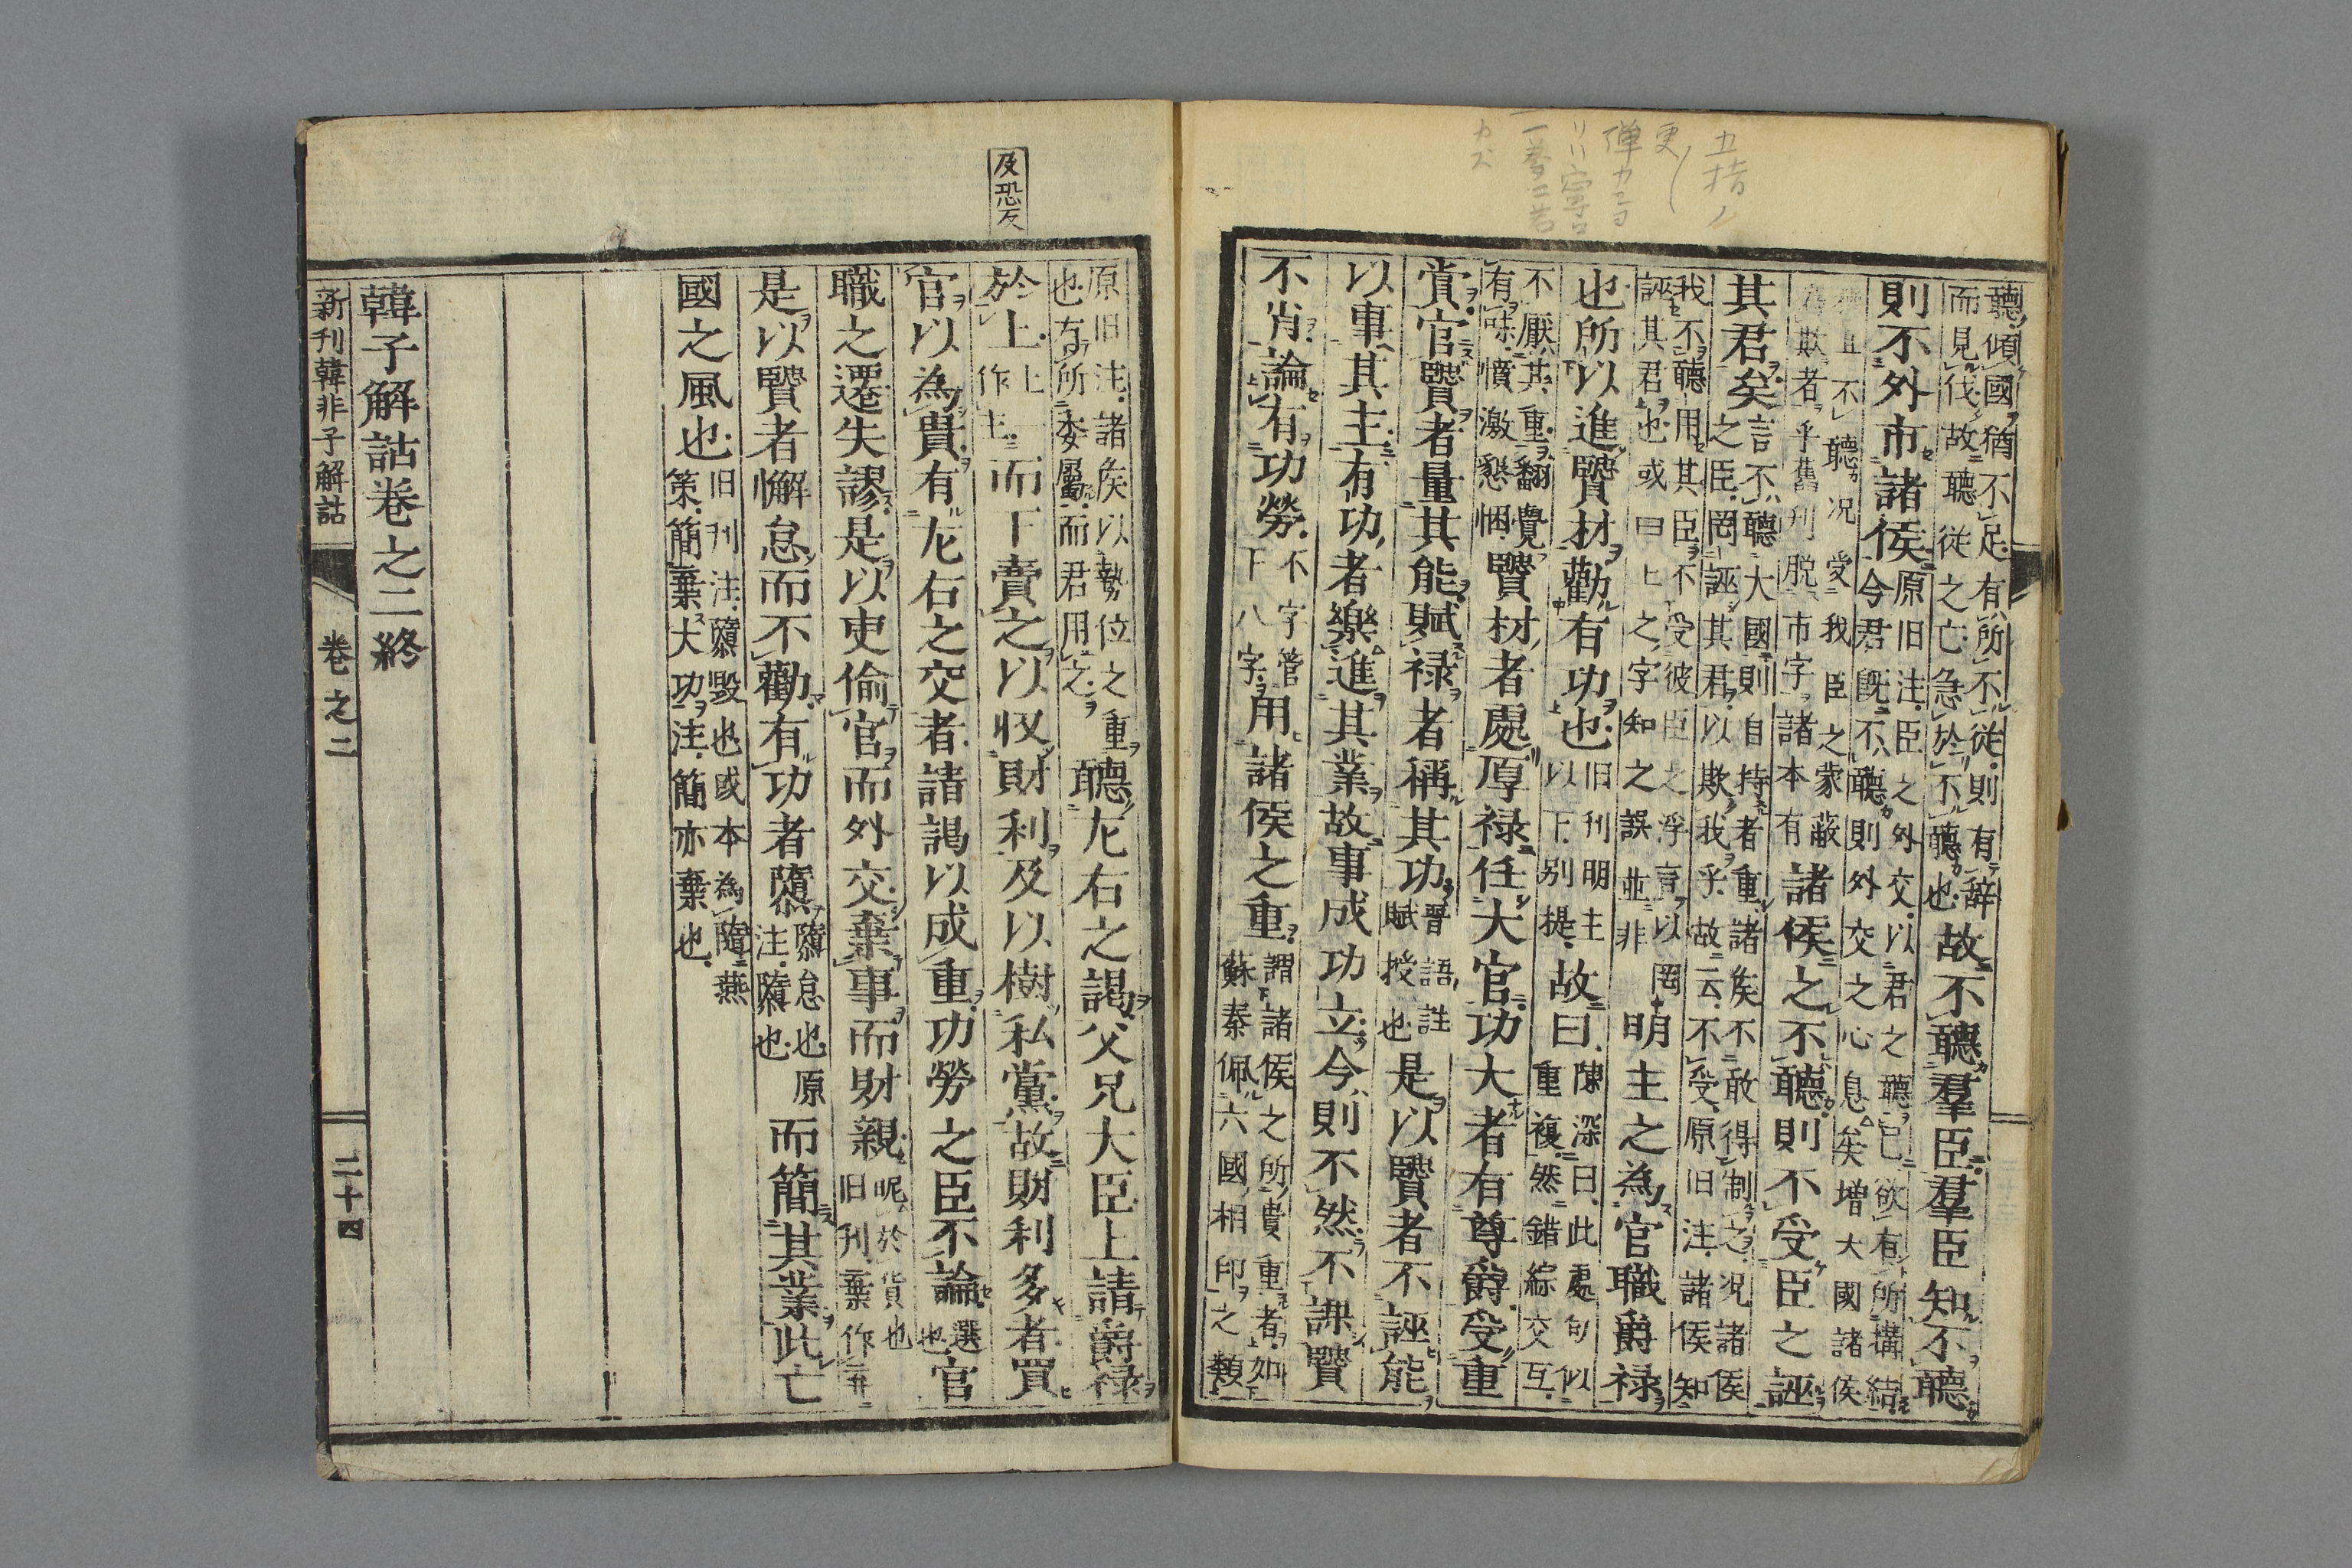 聽傾國猶不足有所不從則有辞
而見伐故聽從之亡急於不聽也
故不聽羣臣羣臣知不聽
則不外市諸侯
原旧注臣之外交以君之聽已欲有所搆結
今君既不聽則外交之心息矣增大國諸侯
且不聽况受我臣之蒙蔽
為欺者乎舊刊脱市字諸本有
諸侯之不聽則不受臣之誣
其君矣
言不聽大國則自持者重諸矦不敢得制之况諸侯
之臣罔誣其君以欺我乎故云不受原旧注諸侯知
我不聽用其臣不受彼臣之浮言以罔
誣其君也或曰上之字知之誤並非
明主之為官職爵禄
也所以進賢材勸有功也
旧刊明主
以下别提
故曰
陳深曰此處句似
重複然錯綜交互
不厭其重翻覺
有味憤激懇悃
賢材者處厚禄任大官功大者有尊爵受重
賞官賢者量其能賦禄者稱其功
晋語註
賦授也
是以賢者不誣能
以事其主有功者樂進其業故事成功立今則不然不課賢
不肖論有功勞
不字管
下八字
用諸侯之重
謂諸侯之所貴重者如
蘇秦佩六國相印之類
及恐反
原旧注諸矦以勢位之重
也有所委屬而君用之
聽左右之謁父兄大臣上請爵禄
於上
上一
作主
而下賣之以収財利及以樹私黨故財利多者買
官以為貴有左右之交者請謁以成重功勞之臣不論
選
也
官
職之遷失謬是以吏偷官而外交棄事而財親
昵於貨也
旧刊棄作弃
是以賢者懈怠而不勸有功者隳
隳怠也原
注隳也
而簡其業此亡
國之風也
旧刊注隳毀也或本為隨燕
策簡棄大功注簡亦棄也
韓子解詁卷之二終
新刊韓非子解詁 卷之二 二十四